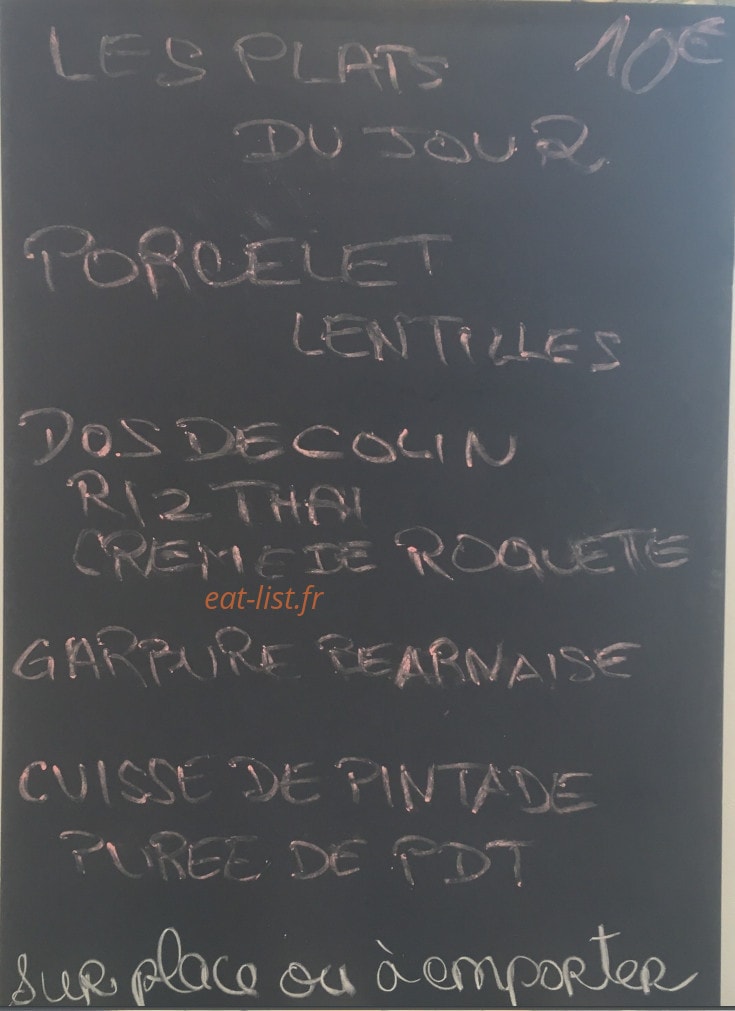 LES PLATS 10€
DU JOUR
PORCELET
LENTILLES
DOS DE COLIN
RIZ THAI
CREME DE ROQUETTE
eat-list.fr
GARPURE BEARNAISE
CUISSE DE PINTADE
PUREE DE PDT
sur place ou à emporter